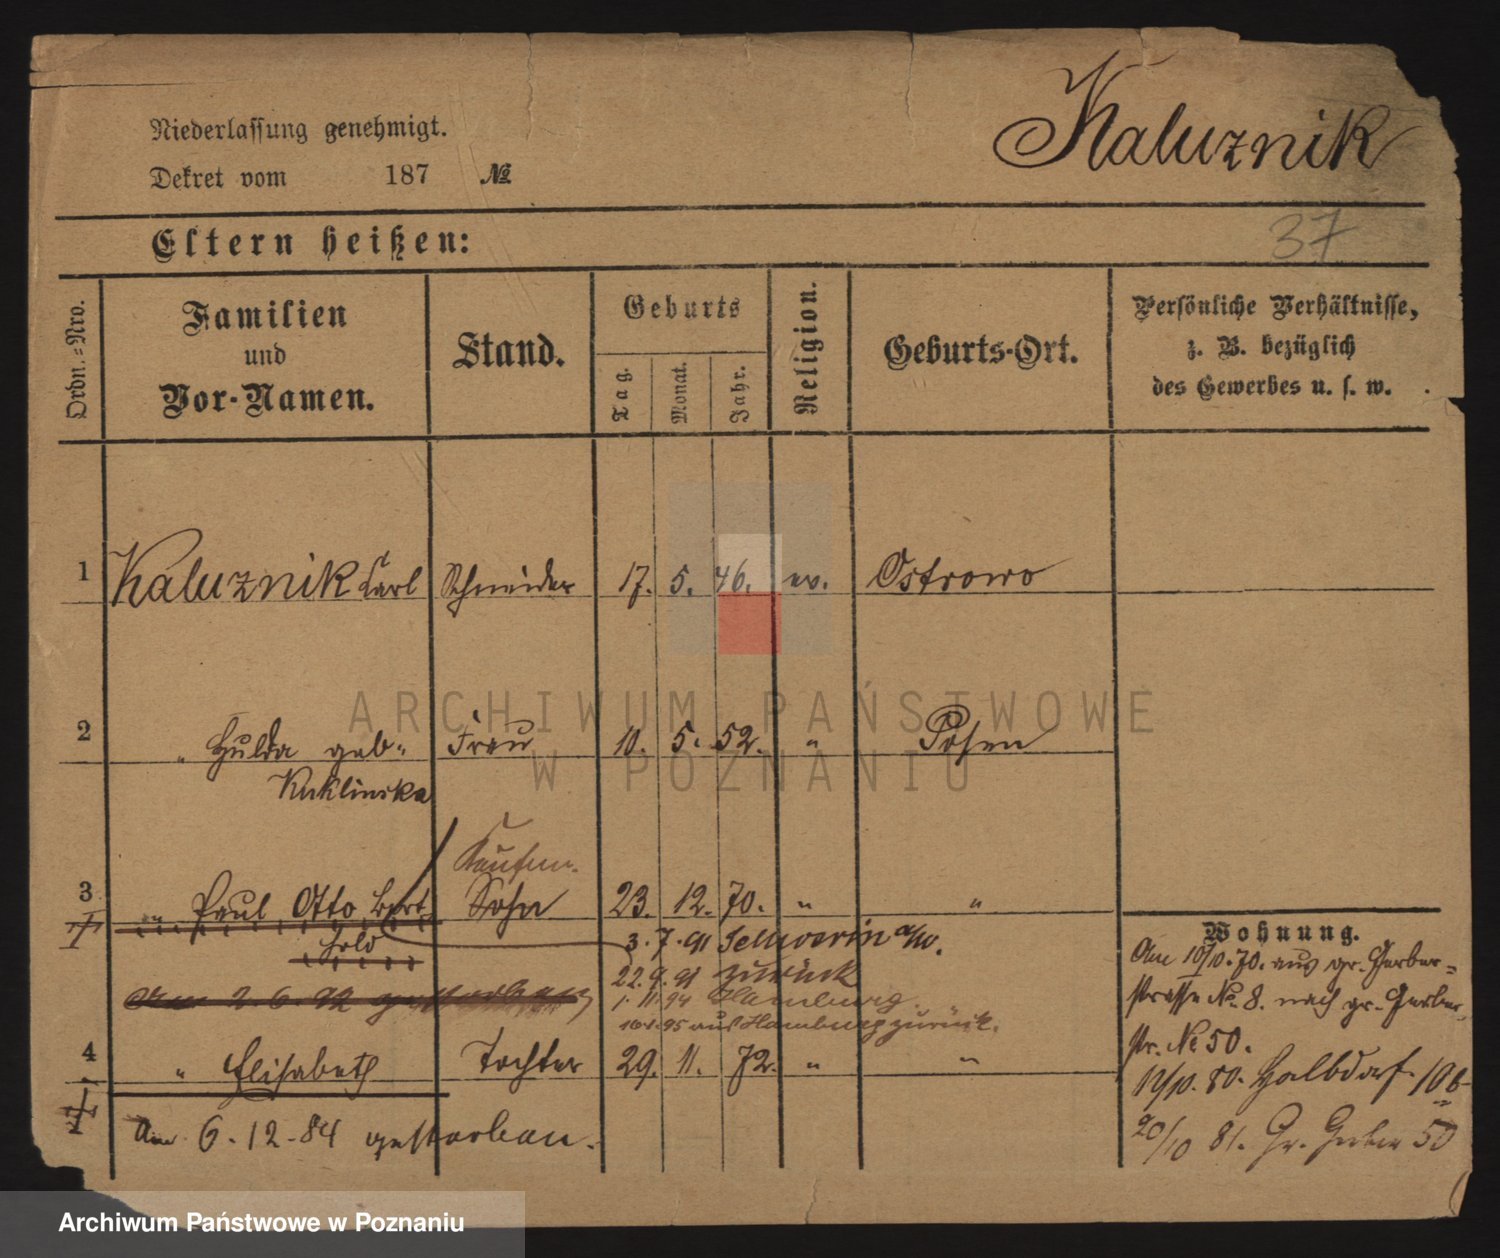 Niederlassung genehmigt.
Dekret vom 187 №
Kaluznik
37
Eltern heißen:
Ordn.=Nro.
Familien
und
Vor-Namen.
Stand.
Geburts
Tag.
Monat.
Jahr.
Religion.
Geburts-Ort.
Persönliche Verhältnisse,
z. B. bezüglich
des Gewerbes u. s. w.
1 Kaluznik Carl Schneider 17. 5. 46. ev. Ostrowo
2 " Hulda geb. Frau 10. 5. 52. " Posen
Kuklinska
Kaufm.
3 " Paul Otto Sohn 23. 12. 70. " "
3. 7. 91 Schwerin a/W.
22. 9. 91 zurück
1. 11. 94 Hamburg.
95 aus Hamburg zurück.
4 " Elisabeth Tochter 29. 11. 72. " "
Am 6. 12. 84 gestorben.
Wohnung.
Am 10/10. 70. aus gr. Gerber=
strasse No. 8. nach gr. Gerber
str. No 50.
12/10. 80. Halbdorf 10b
20/10 81. Gr. Gerber 50
ARCHIWUM PAŃSTWOWE
W POZNANIU
Archiwum Państwowe w Poznaniu